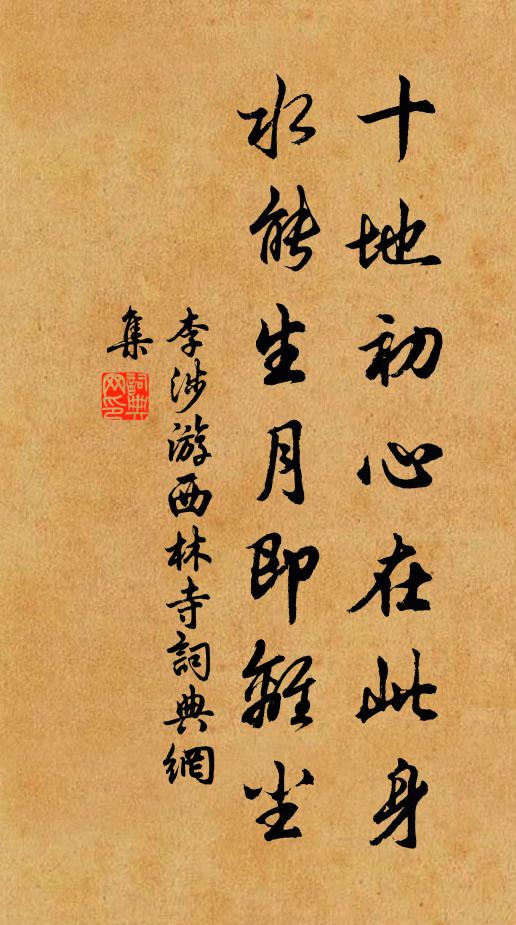 十地初心在此身
水能生月即離尘
李涉游西林寺詞典網
集
詞典
网印